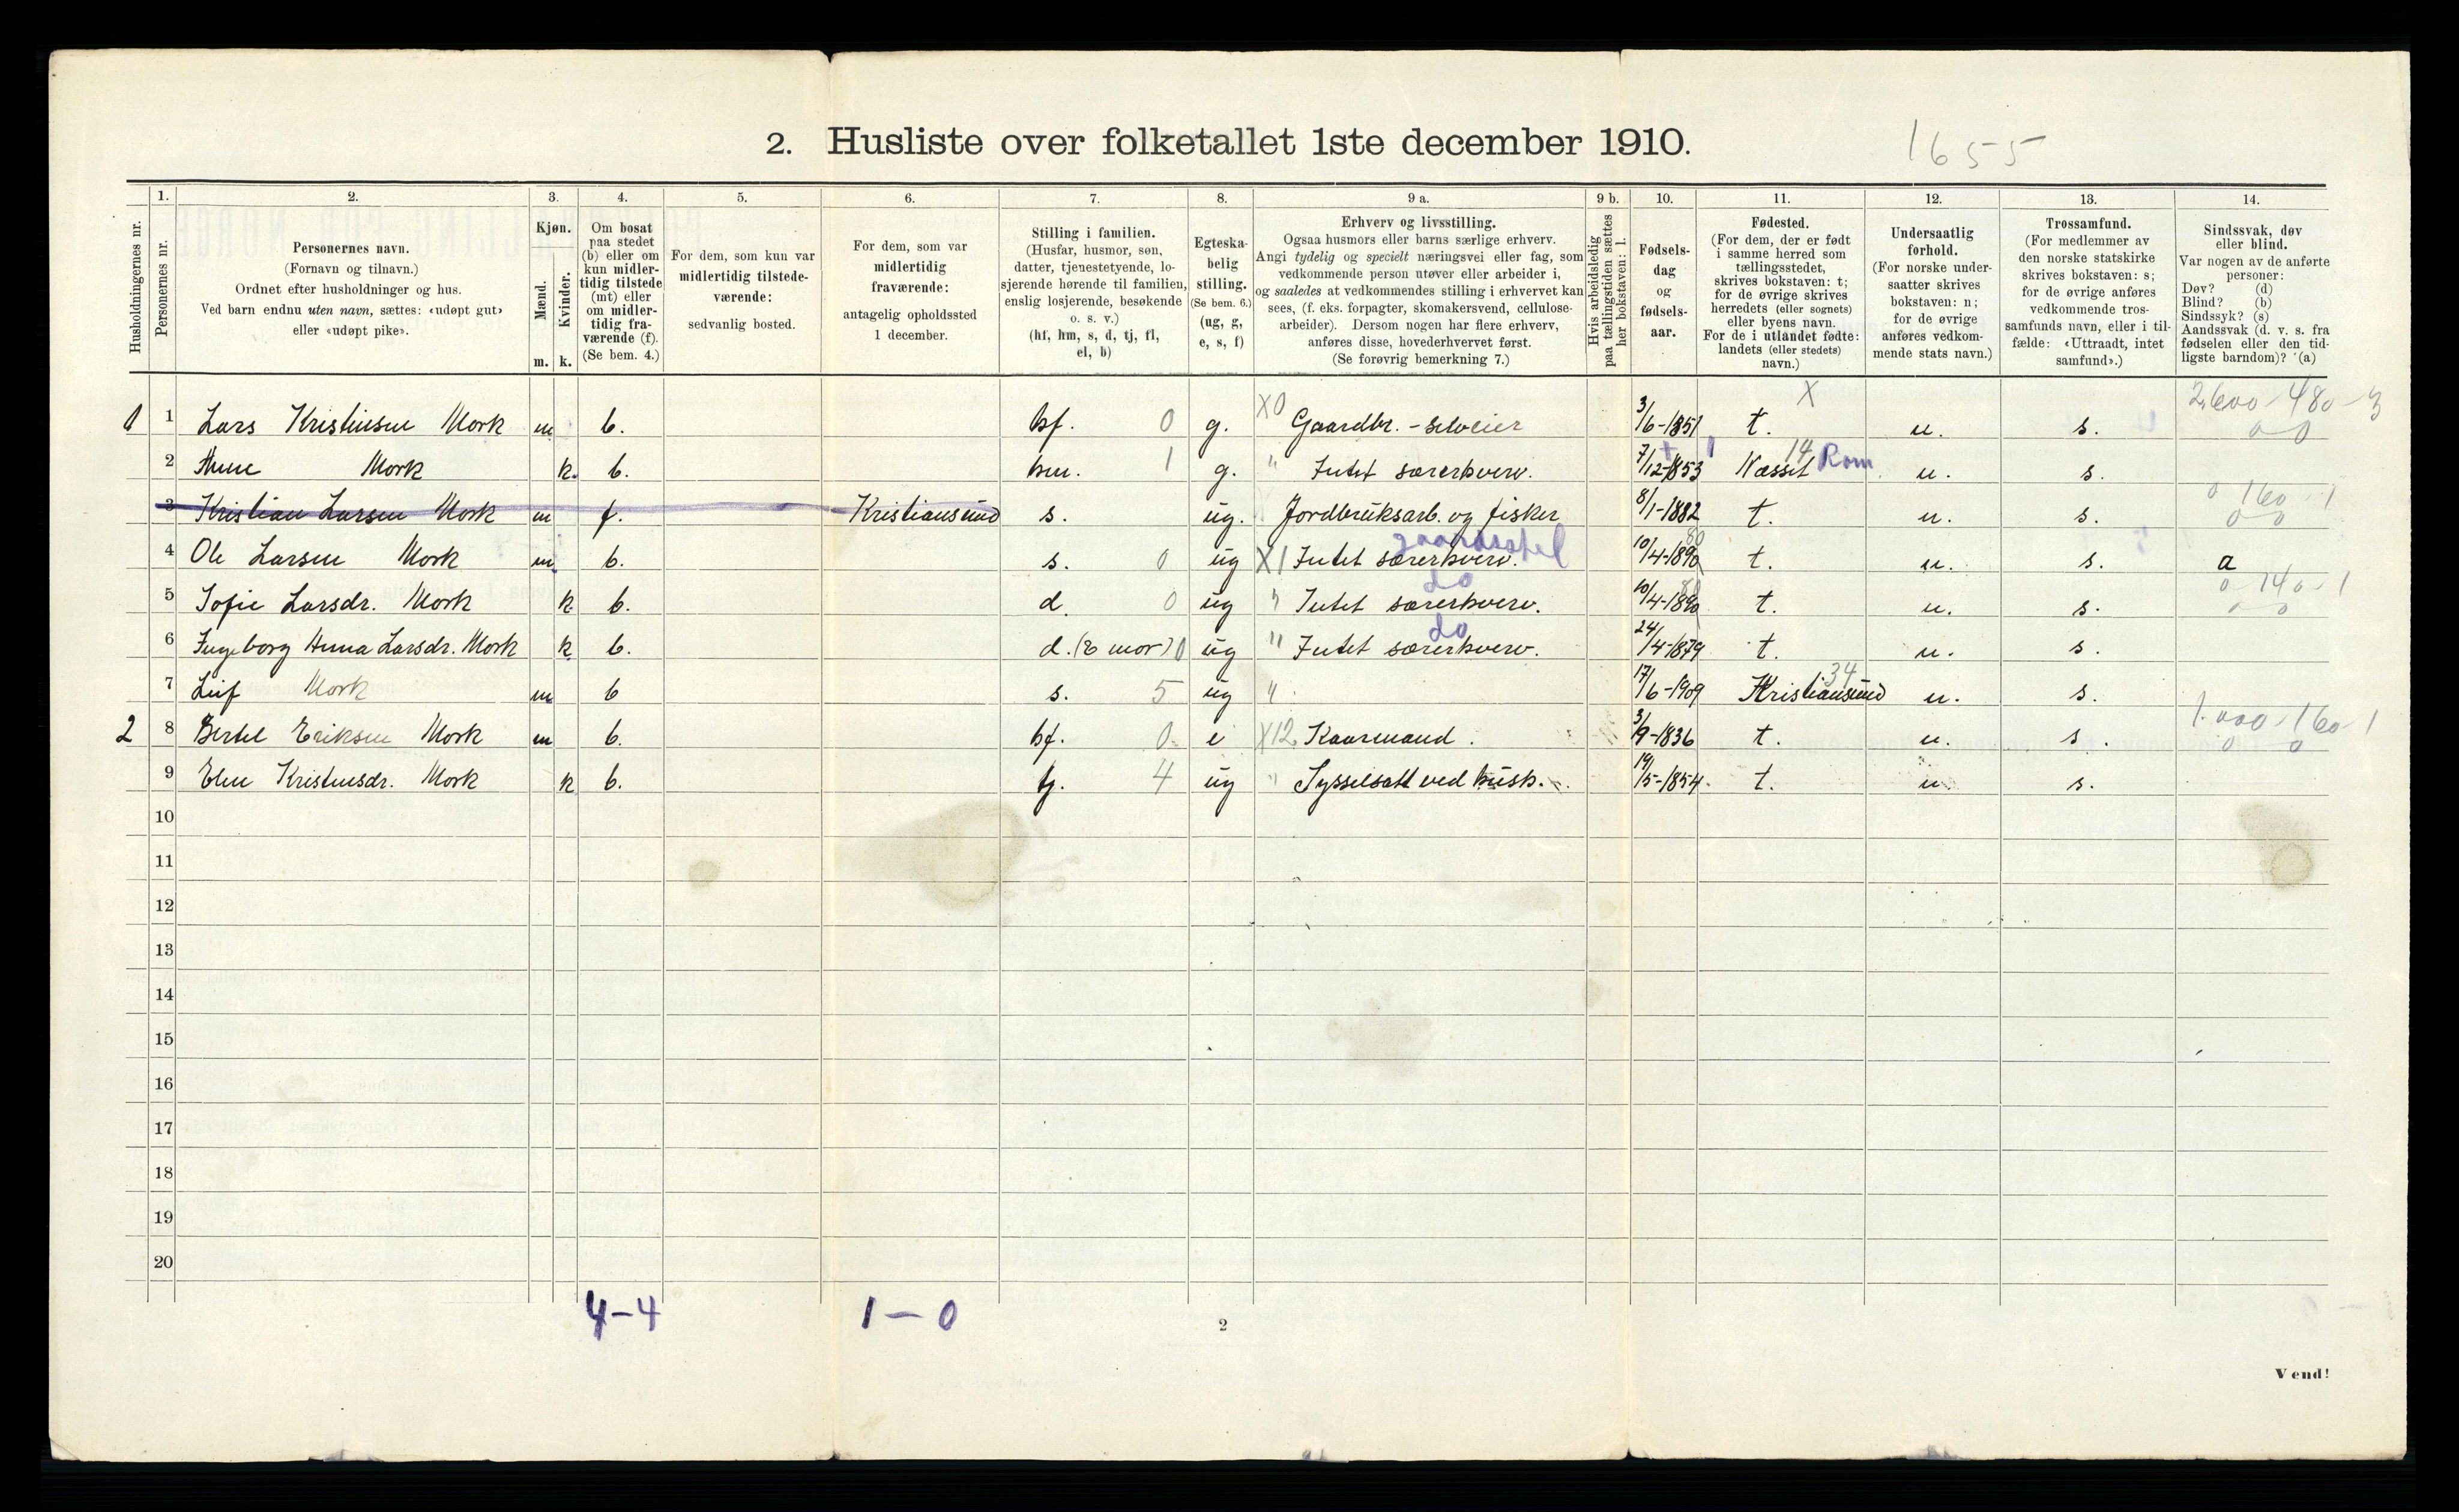 2. Husliste over folketallet 1ste december 1910.
1655
1. 2. 3. 4. 5. 6. 7. 8. 9 a. 9 b. 10. 11. 12. 13. 14.
Husholdningernes nr.
Personernes nr.
Personernes navn.
(Fornavn og tilnavn.)
Ordnet efter husholdninger og hus.
Ved barn endnu uten navn, sættes: «udøpt gut»
eller «udøpt pike».
Kjøn.
Mænd.
Kvinder.
m. k.
Om bosat
paa stedet
(b) eller om
kun midler-
tidig tilstede
(mt) eller
om midler-
tidig fra-
værende (f).
(Se bem. 4.)
For dem, som kun var
midlertidig tilstede-
værende:
sedvanlig bosted.
For dem, som var
midlertidig
fraværende:
antagelig opholdssted
1 december.
Stilling i familien.
(Husfar, husmor, søn,
datter, tjenestetyende, lo-
sjerende hørende til familien,
enslig losjerende, besøkende
o. s. v.)
(hf, hm, s, d, tj, fl,
el, b)
Egteska-
belig
stilling.
(Se bem. 6.)
(ug, g,
e, s, f)
Erhverv og livsstilling.
Ogsaa husmors eller barns særlige erhverv.
Angi tydelig og specielt næringsvei eller fag, som
vedkommende person utøver eller arbeider i,
og saaledes at vedkommendes stilling i erhvervet kan
sees, (f. eks. forpagter, skomakersvend, cellulose-
arbeider). Dersom nogen har flere erhverv,
anføres disse, hovederhvervet først.
(Se forøvrig bemerkning 7.)
Hvis arbeidsledig
paa tællingstiden sættes
her bokstaven: l.
Fødsels-
dag
og
fødsels-
aar.
Fødested.
(For dem, der er født
i samme herred som
tællingsstedet,
skrives bokstaven: t;
for de øvrige skrives
herredets (eller sognets)
eller byens navn.
For de i utlandet fødte:
landets (eller stedets)
navn.)
Undersaatlig
forhold.
(For norske under-
saatter skrives
bokstaven: n;
for de øvrige
anføres vedkom-
mende stats navn.)
Trossamfund.
(For medlemmer av
den norske statskirke
skrives bokstaven: s;
for de øvrige anføres
vedkommende tros-
samfunds navn, eller i til-
fælde: «Uttraadt, intet
samfund».)
Sindssvak, døv
eller blind.
Var nogen av de anførte
personer:
Døv? (d)
Blind? (b)
Sindssyk? (s)
Aandssvak (d. v. s. fra
fødselen eller den tid-
ligste barndom)? (a)
X 2.600-480-3
1 1 Lars Kristensen Mork m b. hf. 0 g. X0 Gaardbr. - selveier 3/6-1851 t. n. s. 0 0
2 Anne Mork k. b. hm. 1 g. " Intet særerhverv. 7/12-1853 Næsset 14 Rom n. s.
3 Kristian Larsen Mork m f. Kristiansund s. ug. Jordbruksarb. og fisker 8/1-1882 t. n. s. 0 160-1 0 0
gaardsstel
4 Ole Larsen Mork m b. s. 0 ug X1 Intet særerhverv. 10/4-1890 80 t. n. s. a
do
5 Sofie Larsdr. Mork k b. d. 0 ug " Intet særerhverv. 10/4-1890 80 t. n. s. 0 140-1 0 0
do
6 Ingeborg Anna Larsdr. Mork k b. d. (& mor) 0 ug " Intet særerhverv. 24/4-1879 t. n. s.
7 Leif Mork m b s. 5 ug " 17/6-1909 Kristiansund 34 n. s.
2 8 Bertel Eriksen Mork m b. hf. 0 e X12 Kaarmand. 3/9-1836 t. n. s. 1.000-160-1 0 0
9 Elen Kristensdr. Mork k b. tj. 4 ug " Sysselsatt ved husst. 19/5-1854 t. n. s.
10
11
12
13
14
15
16
17
18
19
20
4-4 1-0
2
Vend!